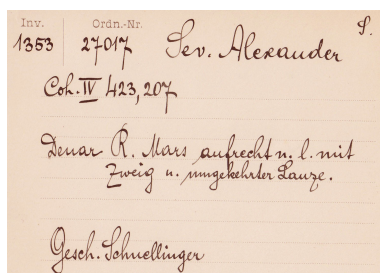 Inv. Ordn.-Nr. S.
1353 27017 Sev. Alexander
Coh. IV 423, 207
Denar R. Mars aufrecht n. l. mit
Zweig u. umgekehrter Lanze.
Gesch. Schnellinger